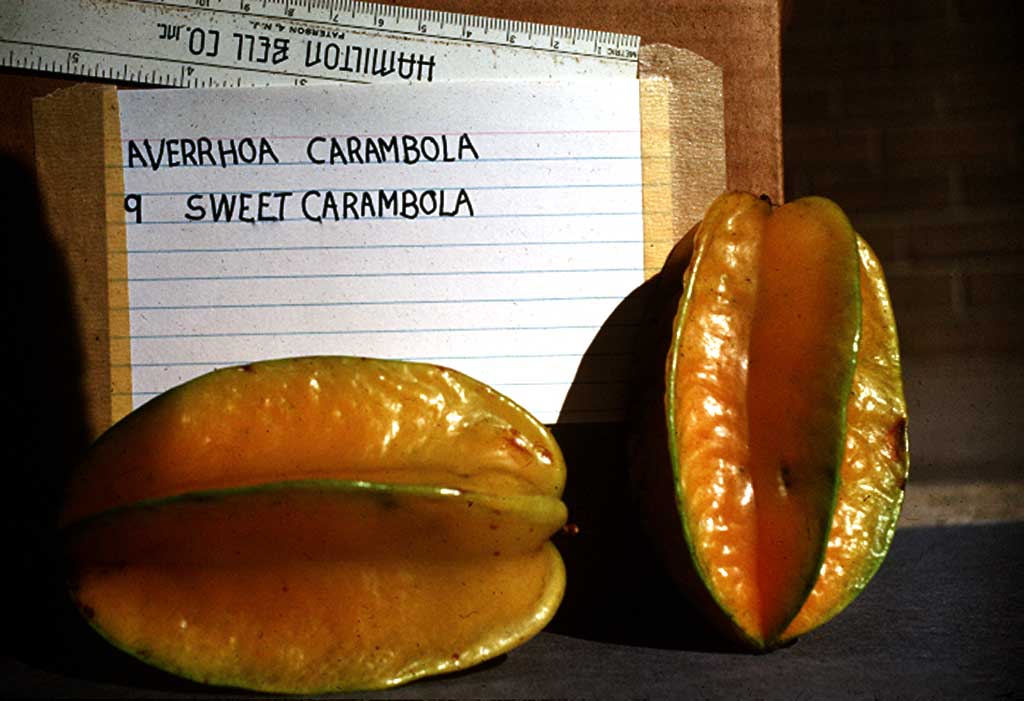 HAMILTON BELL CO. INC.
PATERSON 4, N.J.
METRIC 1 2 3 4 5 6 7 8 9 10
3 4 5
AVERRHOA CARAMBOLA
9 SWEET CARAMBOLA